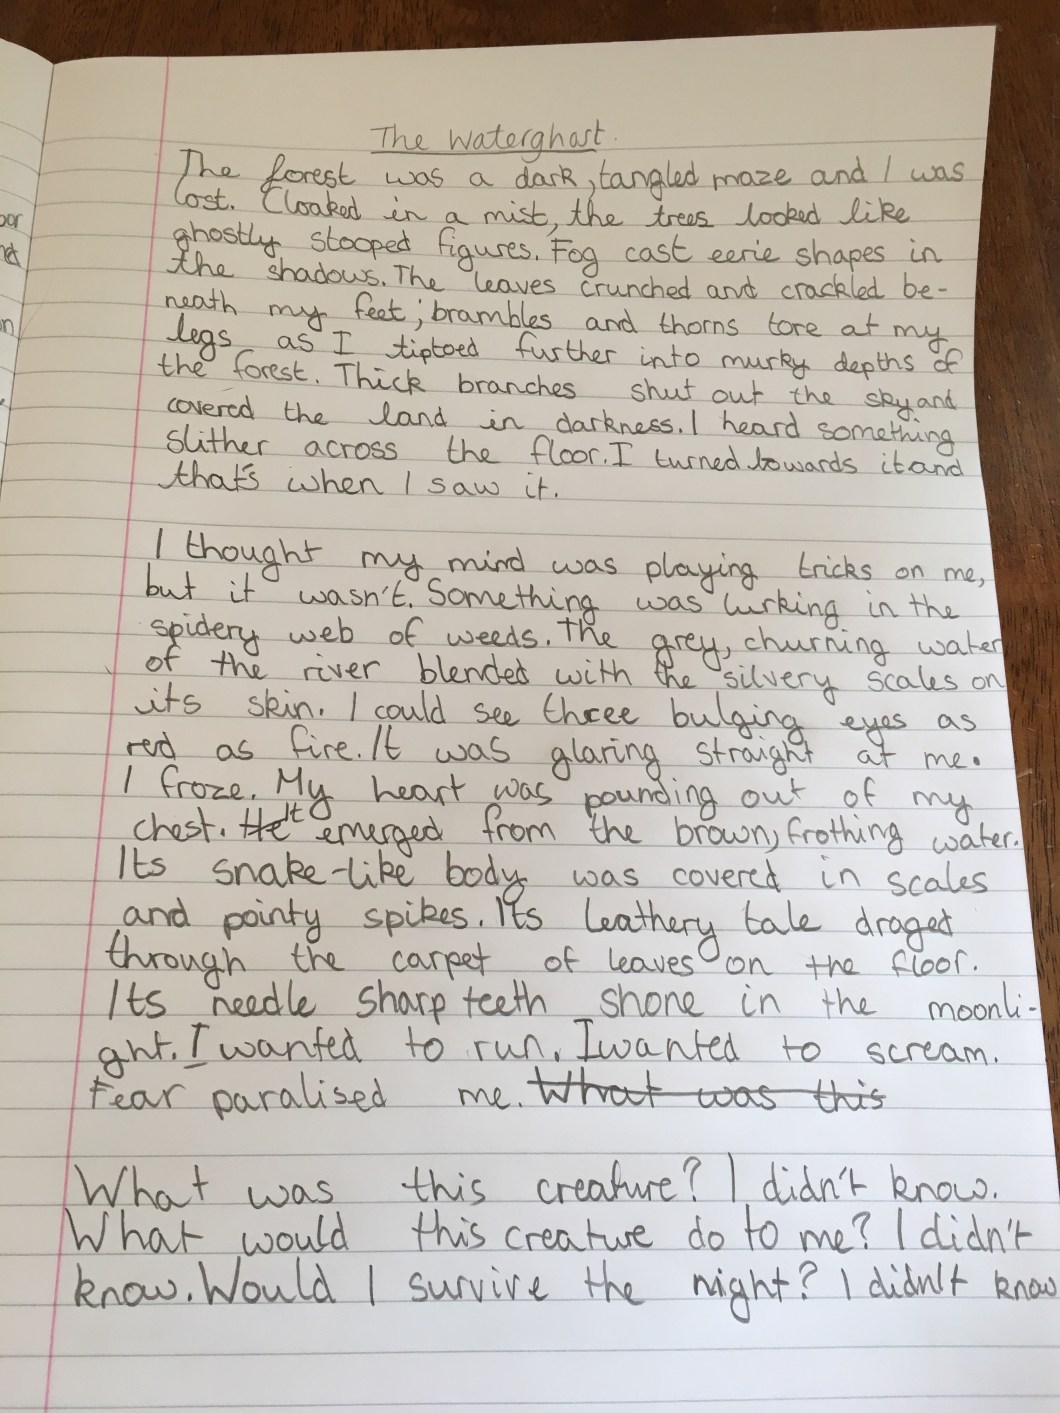 The Waterghast.
The forest was a dark, tangled maze and I was
lost. Cloaked in a mist, the trees looked like
ghostly stooped figures. Fog cast eerie shapes in
the shadows. The leaves crunched and crackled be-
neath my feet; brambles and thorns tore at my
legs as I tiptoed further into murky depths of
the forest. Thick branches shut out the sky and
covered the land in darkness. I heard something
slither across the floor. I turned towards it and
that's when I saw it.
I thought my mind was playing tricks on me,
but it wasn't. Something was lurking in the
spidery web of weeds. The grey, churning water
of the river blended with the silvery scales on
its skin. I could see three bulging eyes as
red as fire. It was glaring straight at me.
I froze. My heart was pounding out of my
chest. It emerged from the brown, frothing water.
Its snake-like body was covered in scales
and pointy spikes. Its leathery tale draged
through the carpet of leaves on the floor.
Its needle sharp teeth shone in the moonli-
ght. I wanted to run. I wanted to scream.
Fear paralised me. What was this
What was this creature? I didn't know.
What would this creature do to me? I didn't
know. Would I survive the night? I didn't know